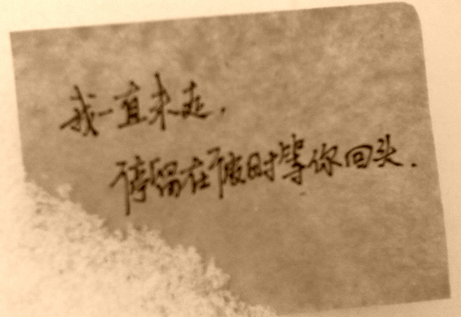 我一直未走.
停留在原时等你回头.